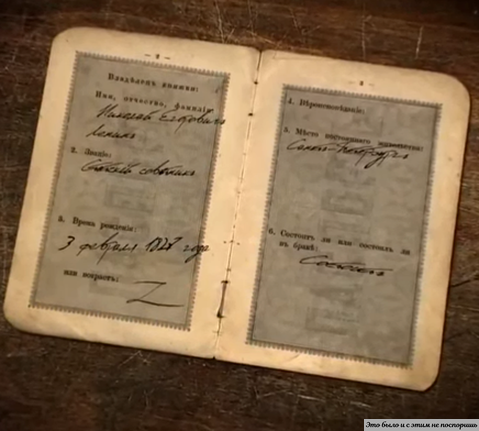 Владѣлецъ книжки:
Имя, отчество, фамилія:
Николай Егорович
Ленин
2. Званіе:
Статск. советник
3. Время рожденія:
3 февраля 1827 года
или возрастъ:
4. Вѣроисповѣданіе:
5. Мѣсто постояннаго жительства:
Санкт-Петербург
6. Состоитъ ли или состоялъ ли
въ бракѣ:
Состоит
Это было и с этим не поспоришь